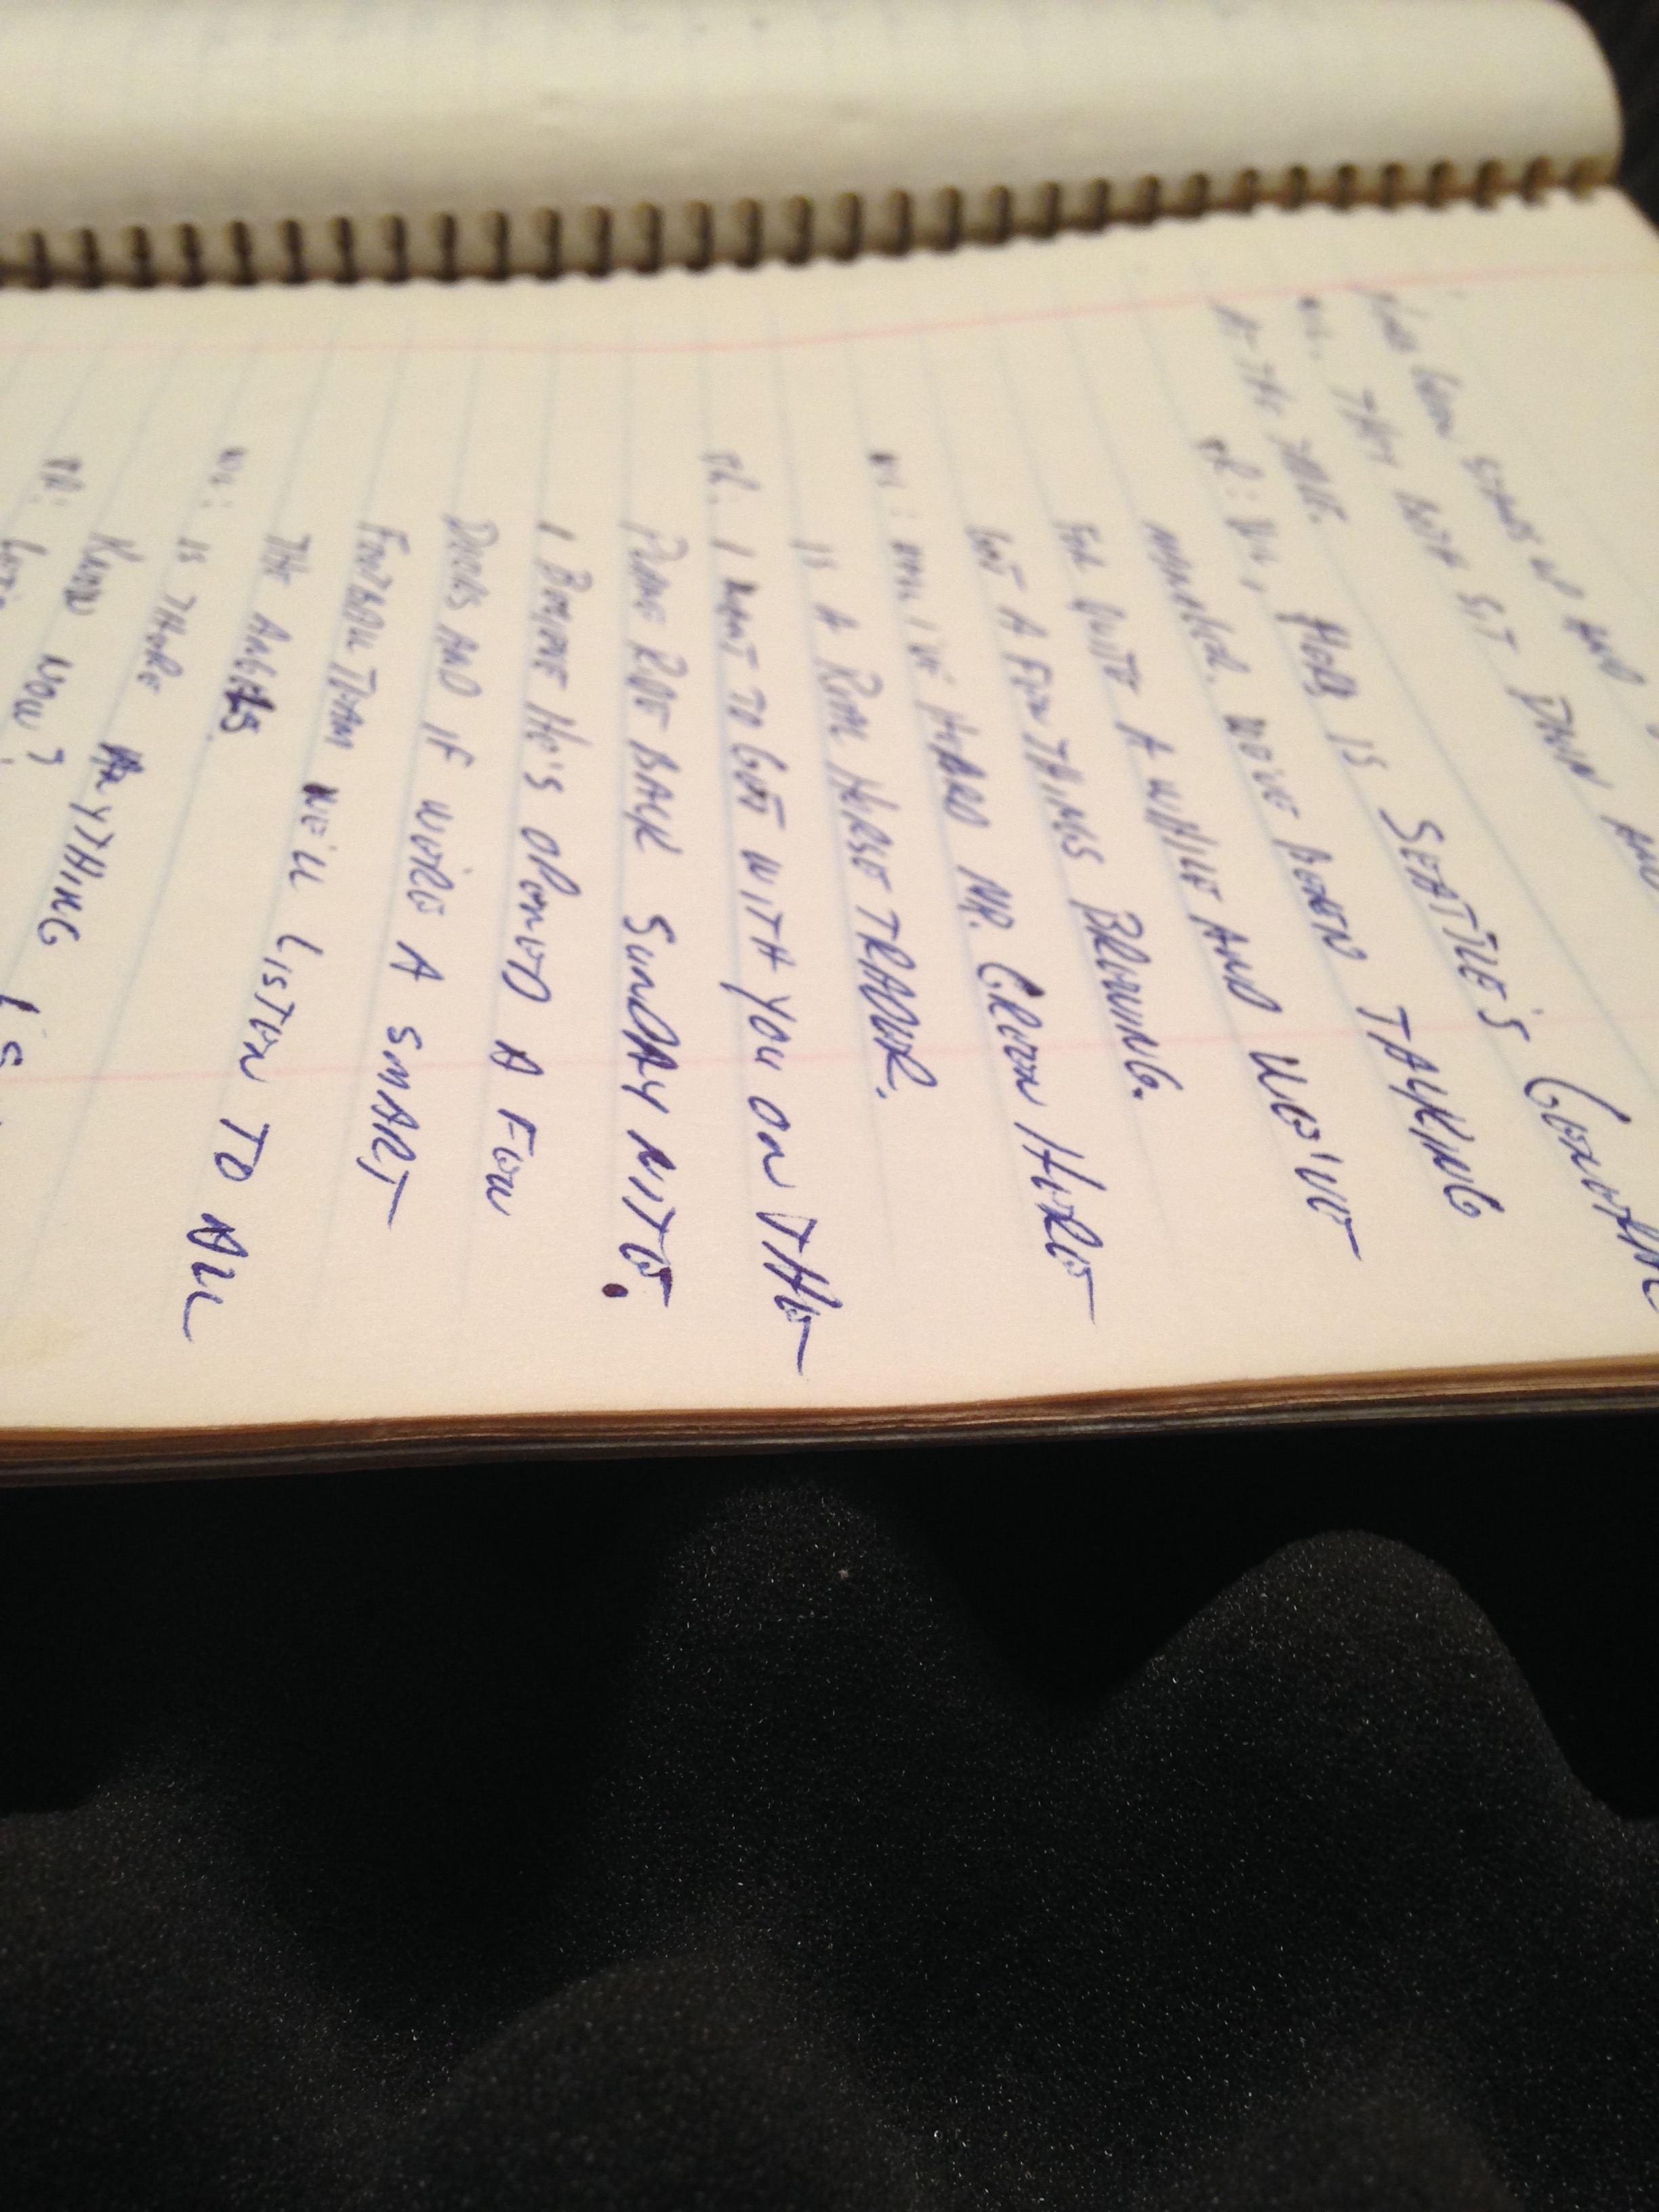 AND
THEY BOTH SIT DOWN AND
AT THE TABLE.
HERE IS SEATTLE'S GENERAL
MANAGER. WE'VE BEEN TALKING
FOR QUITE A WHILE AND WE'VE
GOT A FEW THINGS BREWING.
I'VE HEARD MR. GREEN HERE
IS A REAL HORSE TRADER.
I WANT TO GET WITH YOU ON THE
RIDE BACK SUNDAY NITE.
I BELIEVE HE'S OPENED A FEW
DOORS AND IF WE'RE A SMART
FOOTBALL TEAM WE'LL LISTEN TO ALL
THE ANGLES
IS THERE ANYTHING
NOW?